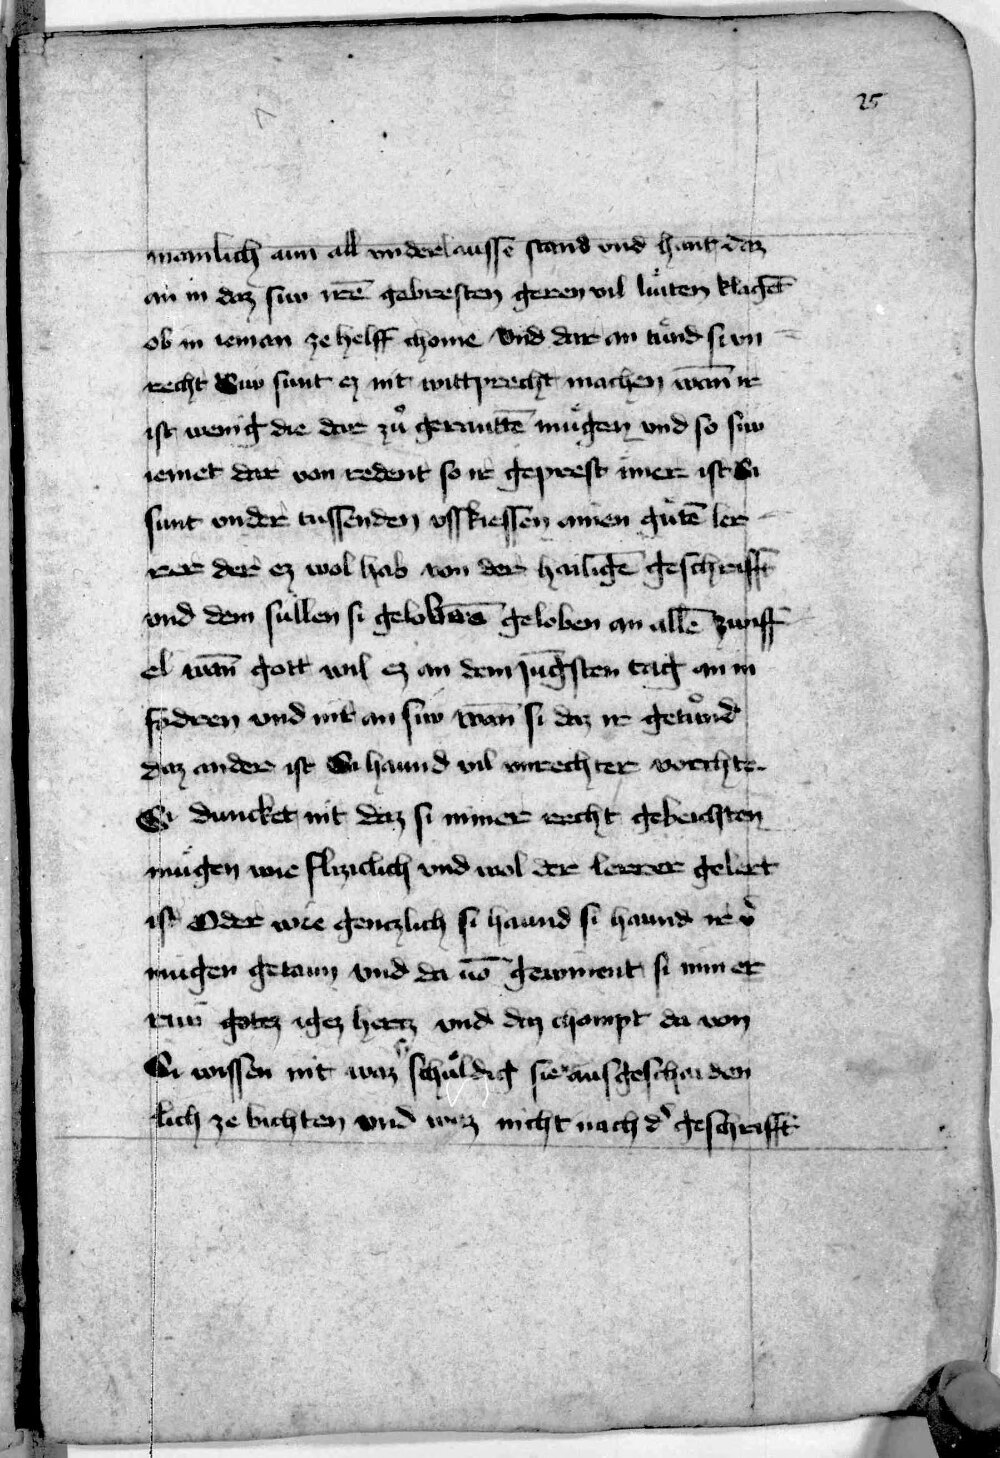 25
manlich aun all underlaussē stand und hant daz
an in daz siw irē gebresten geren vil lüten klaget
ob in ieman ze helff chome Und dar an tünd si vn
recht Siw sunt ez nit wittprecht machen wān ir
ist wenig die dar zů gerauttē mügen und so siw
iemet dar von redent so ir geprest imer ist Si
sunt under tussenden usskiessen ainen gůtē ler
rer der ez wol hab von der hailigē geschrifft
und dem sullen si geloben an allē zwiff
el wān gott wil ez an dem Jūgsten tag an in
fodren und nit an siw wān si daz ir getůnd
daz ander ist Si haund vil unrechter vorchte
Si duncket nit daz si nimer recht gebeichten
mügen wie flizclich und wol der lerrer gelert
ist Oder wie gentzlich si haund si haund ir v̄
mügen getaun und da vō gewinent si nimer
ruw gotez hertz und daz chompt da von
Si wissen nit waz schuldig sie ausgeschaiden
lich ze bichten und waz nicht nach d' geschrifft